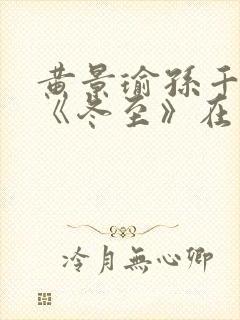 黄景瑜孫千
《冬至》在
冷月無心卿